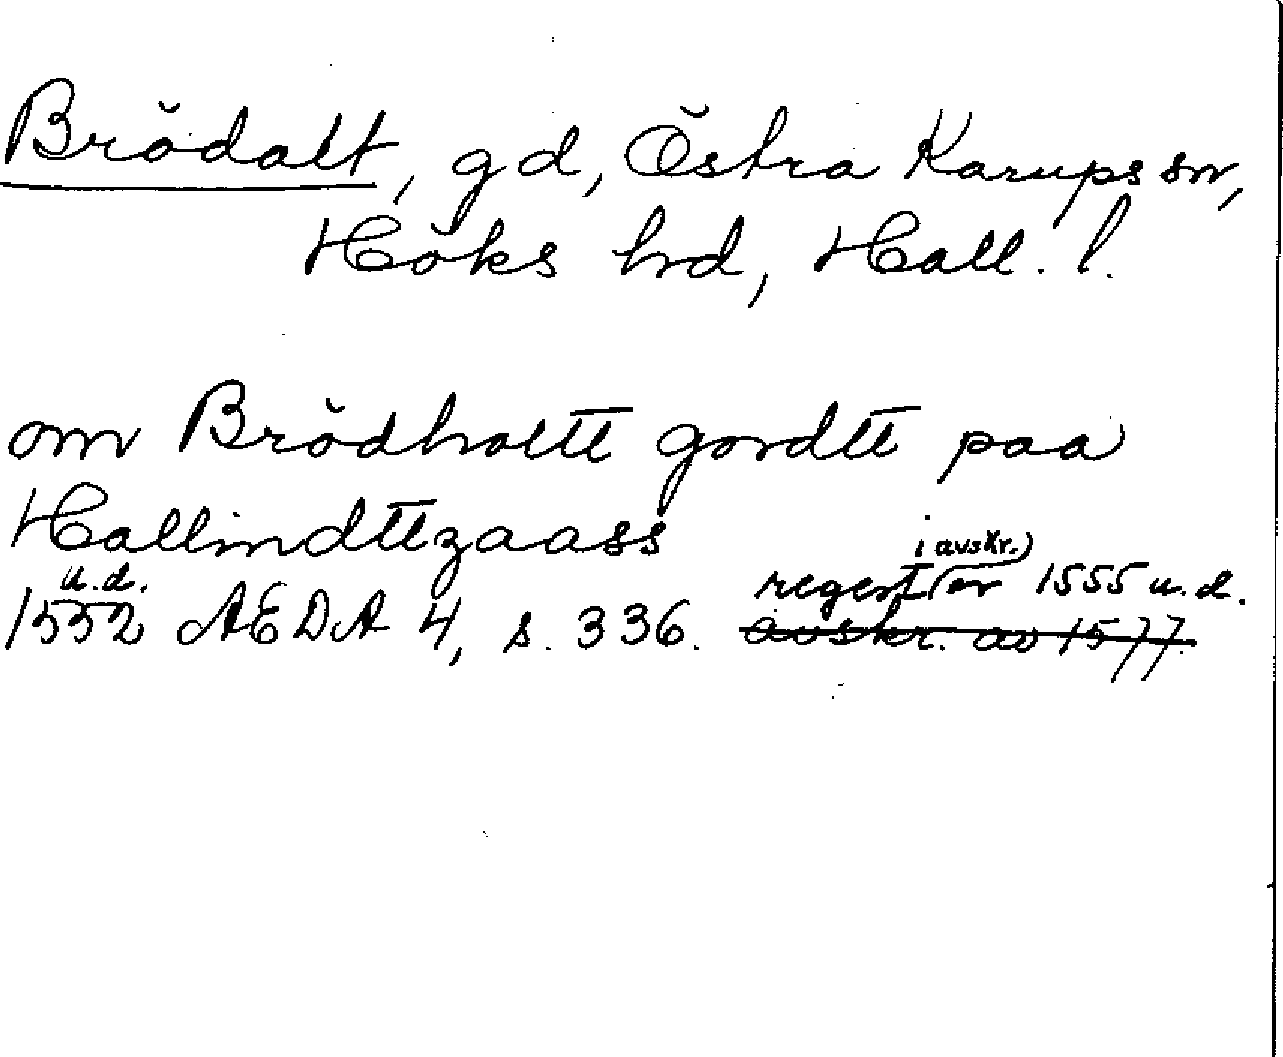 Brödalt, gd, Östra Karups sn,
Höks hd, Hall. l.
om Brödholtt gordtt paa
Hallindttzaass
u.d.
1552 AEDA 4, s. 336. regest (i avskr.) av 1555 u.d.
avskr. av 1577.